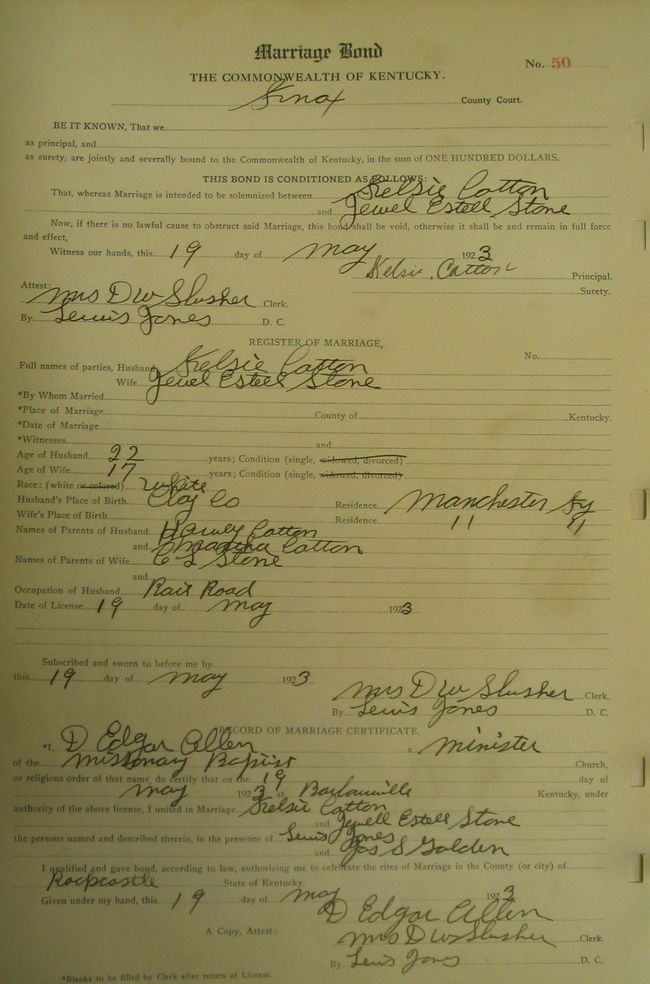 Marriage Bond
No. 50
THE COMMONWEALTH OF KENTUCKY.
Knox County Court.
BE IT KNOWN, That we
as principal, and
as surety, are jointly and severally bound to the Commonwealth of Kentucky, in the sum of ONE HUNDRED DOLLARS.
THIS BOND IS CONDITIONED AS FOLLOWS:
That, whereas Marriage is intended to be solemnized between Kelsie Cotton
and Jewel Estell Stone
Now, if there is no lawful cause to obstruct said Marriage, this bond shall be void, otherwise it shall be and remain in full force
and effect,
Witness our hands, this 19 day of May 1923
Kelsie Cotton Principal.
Attest: Surety.
Mrs D W Slusher Clerk.
By Lewis Jones D. C.
REGISTER OF MARRIAGE,
No.
Full names of parties, Husband Kelsie Cotton
Wife Jewel Estell Stone
*By Whom Married
*Place of Marriage County of Kentucky.
*Date of Marriage
*Witnesses and
Age of Husband 22 years; Condition (single, widowed, divorced)
Age of Wife 17 years; Condition (single, widowed, divorced)
Race: (white or colored) White
Husband's Place of Birth Clay Co Residence Manchester Ky
Wife's Place of Birth Residence " "
Names of Parents of Husband Cotton
and Martha Cotton
Names of Parents of Wife C L Stone
and
Occupation of Husband Rail Road
Date of License 19 day of May 1923
Subscribed and sworn to before me by
this 19 day of May 1923
Mrs D W Slusher Clerk.
By Lewis Jones D. C.
RECORD OF MARRIAGE CERTIFICATE,
*I, D Edgar Allen a Minister
of the Missionay Baptist Church,
or religious order of that name, do certify that on the 19 day of
May 1923 at Barbourville Kentucky, under
authority of the above license, I united in Marriage Kelsie Cotton
and Jewell Estell Stone
the persons named and described therein, in the presence of Lewis Jones
and Jas S Golden
I qualified and gave bond, according to law, authorizing me to celebrate the rites of Marriage in the County (or city) of
Rockcastle State of Kentucky.
Given under my hand, this 19 day of May 1923
D Edgar Allen
A Copy, Attest: Mrs D W Slusher Clerk.
By Lewis Jones D. C.
*Blanks to be filled by Clerk after return of License